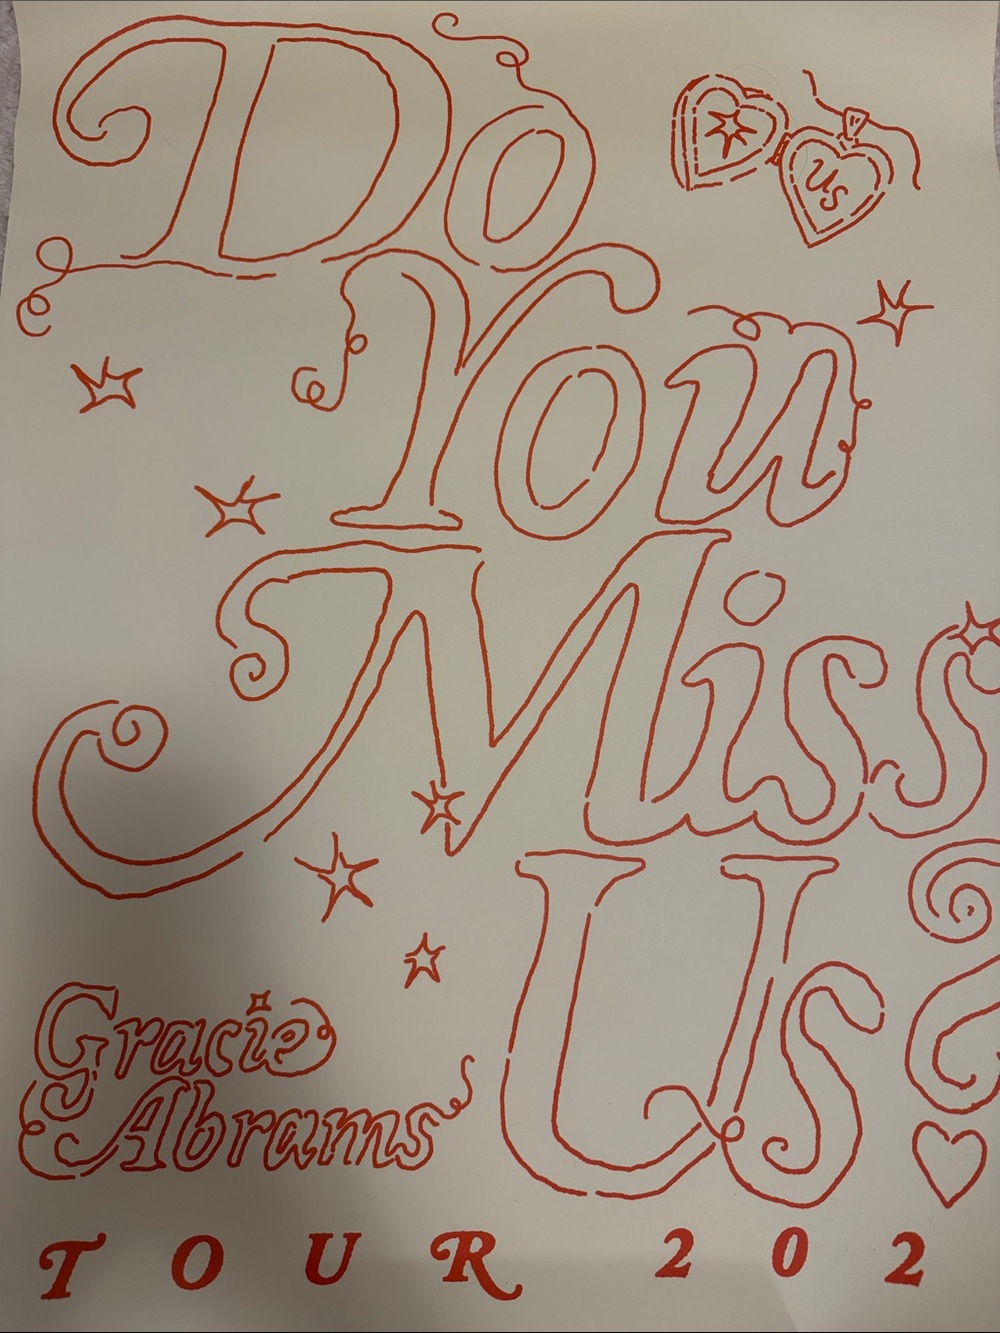 Do
Us
You
Miss
Us?
Gracie
Abrams
TOUR 202